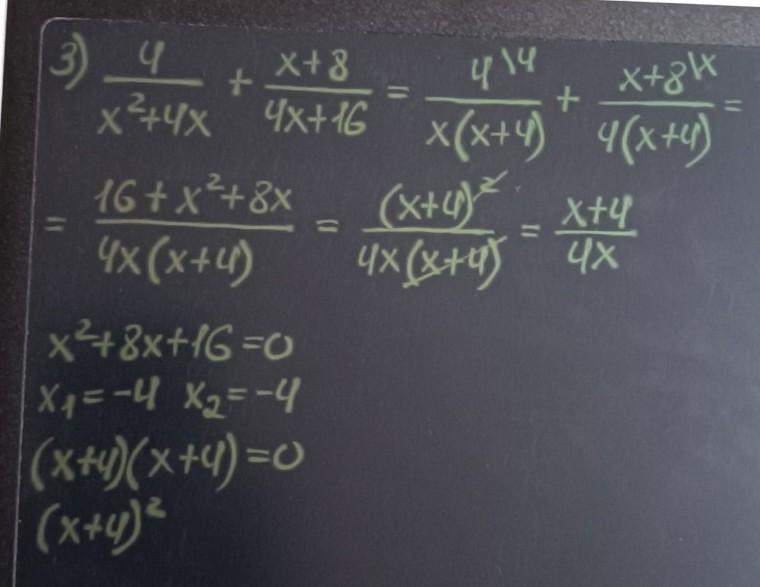 3) 4/(x²+4x) + (x+8)/(4x+16) = 4\4/(x(x+4)) + x+8\x/(4(x+4)) =
= (16+x²+8x)/(4x(x+4)) = (x+4)²/(4x(x+4)) = (x+4)/(4x)
x²+8x+16=0
x₁=-4 x₂=-4
(x+4)(x+4)=0
(x+4)²